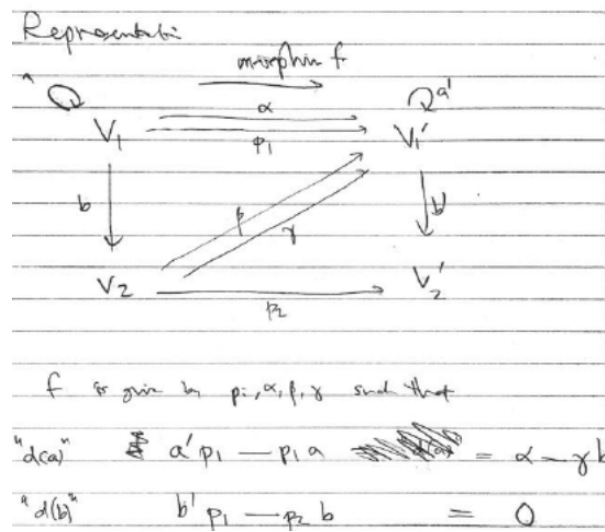 Representati
morphism f
a a'
α
V₁ p₁ V₁'
b β γ b'
V₂ p₂ V₂'
f is given by pᵢ, α, β, γ such that
"d(a)" a'p₁ — p₁a = α — γb
"d(b)" b'p₁ — p₂b = 0